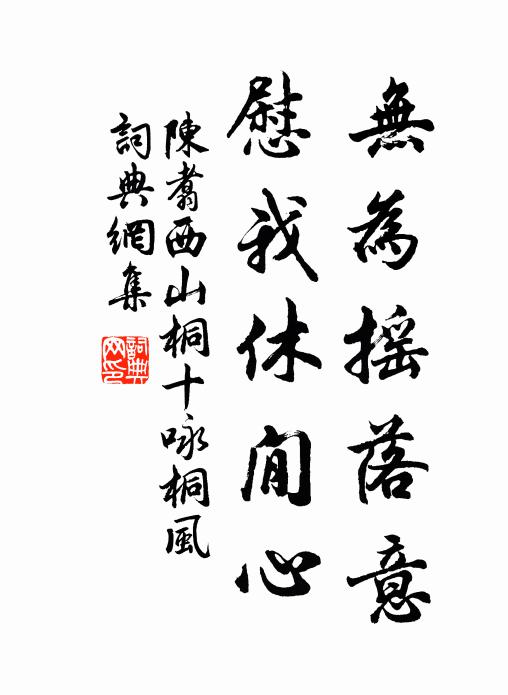 無為摇落意
慰我休閒心
陳翥西山桐十咏桐風
詞典網集
詞典网印